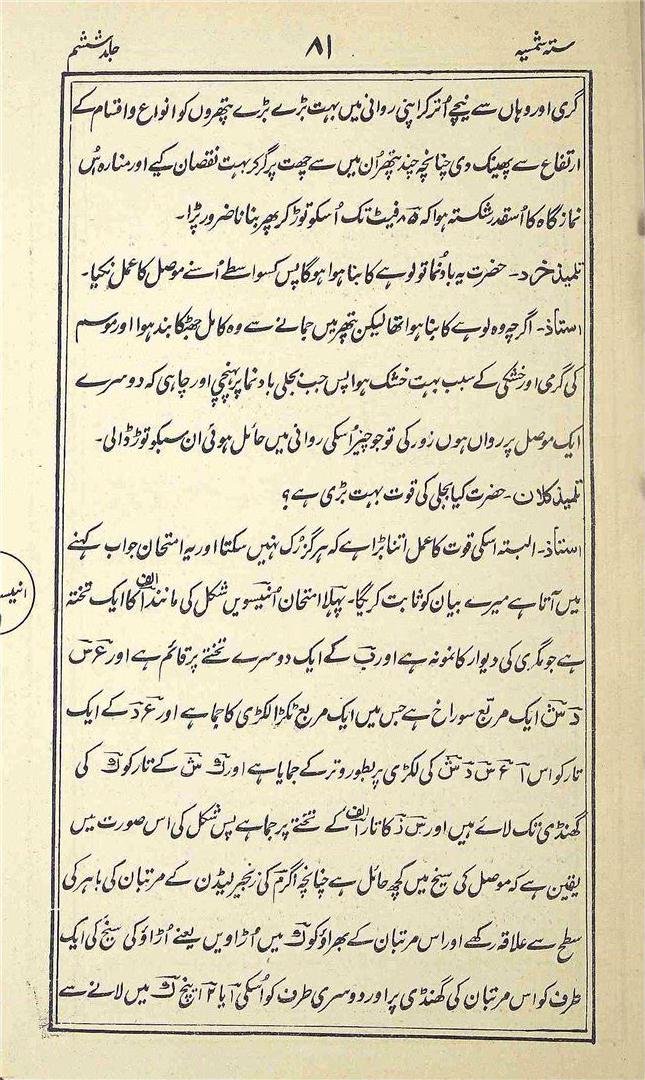 ستہ شمسیہ ۸۱ جلد ششم
گری اور وہاں سے نیچے اُتر کر اپنی روانی میں بہت بڑے بڑے پتھروں کو انواع و اقسام کے
ارتفاع سے پھینک دی چنانچہ چند پتھر اُن میں سے چھت پر گر کر بہت نقصان کیے اور منارہ اُس
نماز گاہ کا اُسقدر شکستہ ہوا کہ ۸۵ فیٹ تک اُسکو توڑ کر پھر بنانا ضرور پڑا۔
تلمیذ خرد۔ حضرت یہ بادنما تو لوہے کا بنا ہوا ہوگا پس کسواسطے اُسنے موصل کا عمل نکیا۔
استاذ۔ اگرچہ وہ لوہے کا بنا ہوا تھا لیکن پتھر میں جمانے سے وہ کامل جھٹکا بند ہوا اور موسم
کی گرمی اور خشکی کے سبب بہت خشک ہوا پس جب بجلی بادنما پر پہنچی اور چاہی کہ دوسرے
ایک موصل پر رواں ہوں زور کی تو جو چیز اُسکی روانی میں حائل ہوئی ان سبکو توڑ ڈالی۔
تلمیذ کلان۔ حضرت کیا بجلی کی قوت بہت بڑی ہے؟
استاذ۔ البتہ اسکی قوت کا عمل اتنا بڑا ہے کہ ہرگز رُک نہیں سکتا اور یہ امتحان جو اب کہنے
میں آتا ہے میرے بیان کو ثابت کریگا۔ پہلا امتحان اُنیسویں شکل کی مانند الف کا ایک تختہ
ہے جو مگری کی دیوار کا نمونہ ہے اور ب کے ایک دوسرے تختے پر قائم ہے اور ع س
د ش ایک مربع سوراخ ہے جس میں ایک مربع ٹکڑا لکڑی کا جما ہے اور ع د کے ایک
تار کو اس ع س د ش کی لکڑی پر بطور وتر کے جمایا ہے اور ک ش کے تار کو ک کی
گھنڈی تک لائے ہیں اور س د کا تار الف کے تختے پر جما ہے پس شکل کی اس صورت میں
یقین ہے کہ موصل کی سیخ میں کچھ حائل ہے چنانچہ اگر م کی زنجیر لیڈن کے مرتبان کی باہر کی
سطح سے علاقہ رکھے اور اس مرتبان کے بھراؤ کو ک میں اُڑاویں یعنے اُڑاؤ کی سیخ کی ایک
طرف کو اس مرتبان کی گھنڈی پر اور دوسری طرف کو اُسکی ۱ یا ۲ اینچ ک میں لانے سے
انیسو